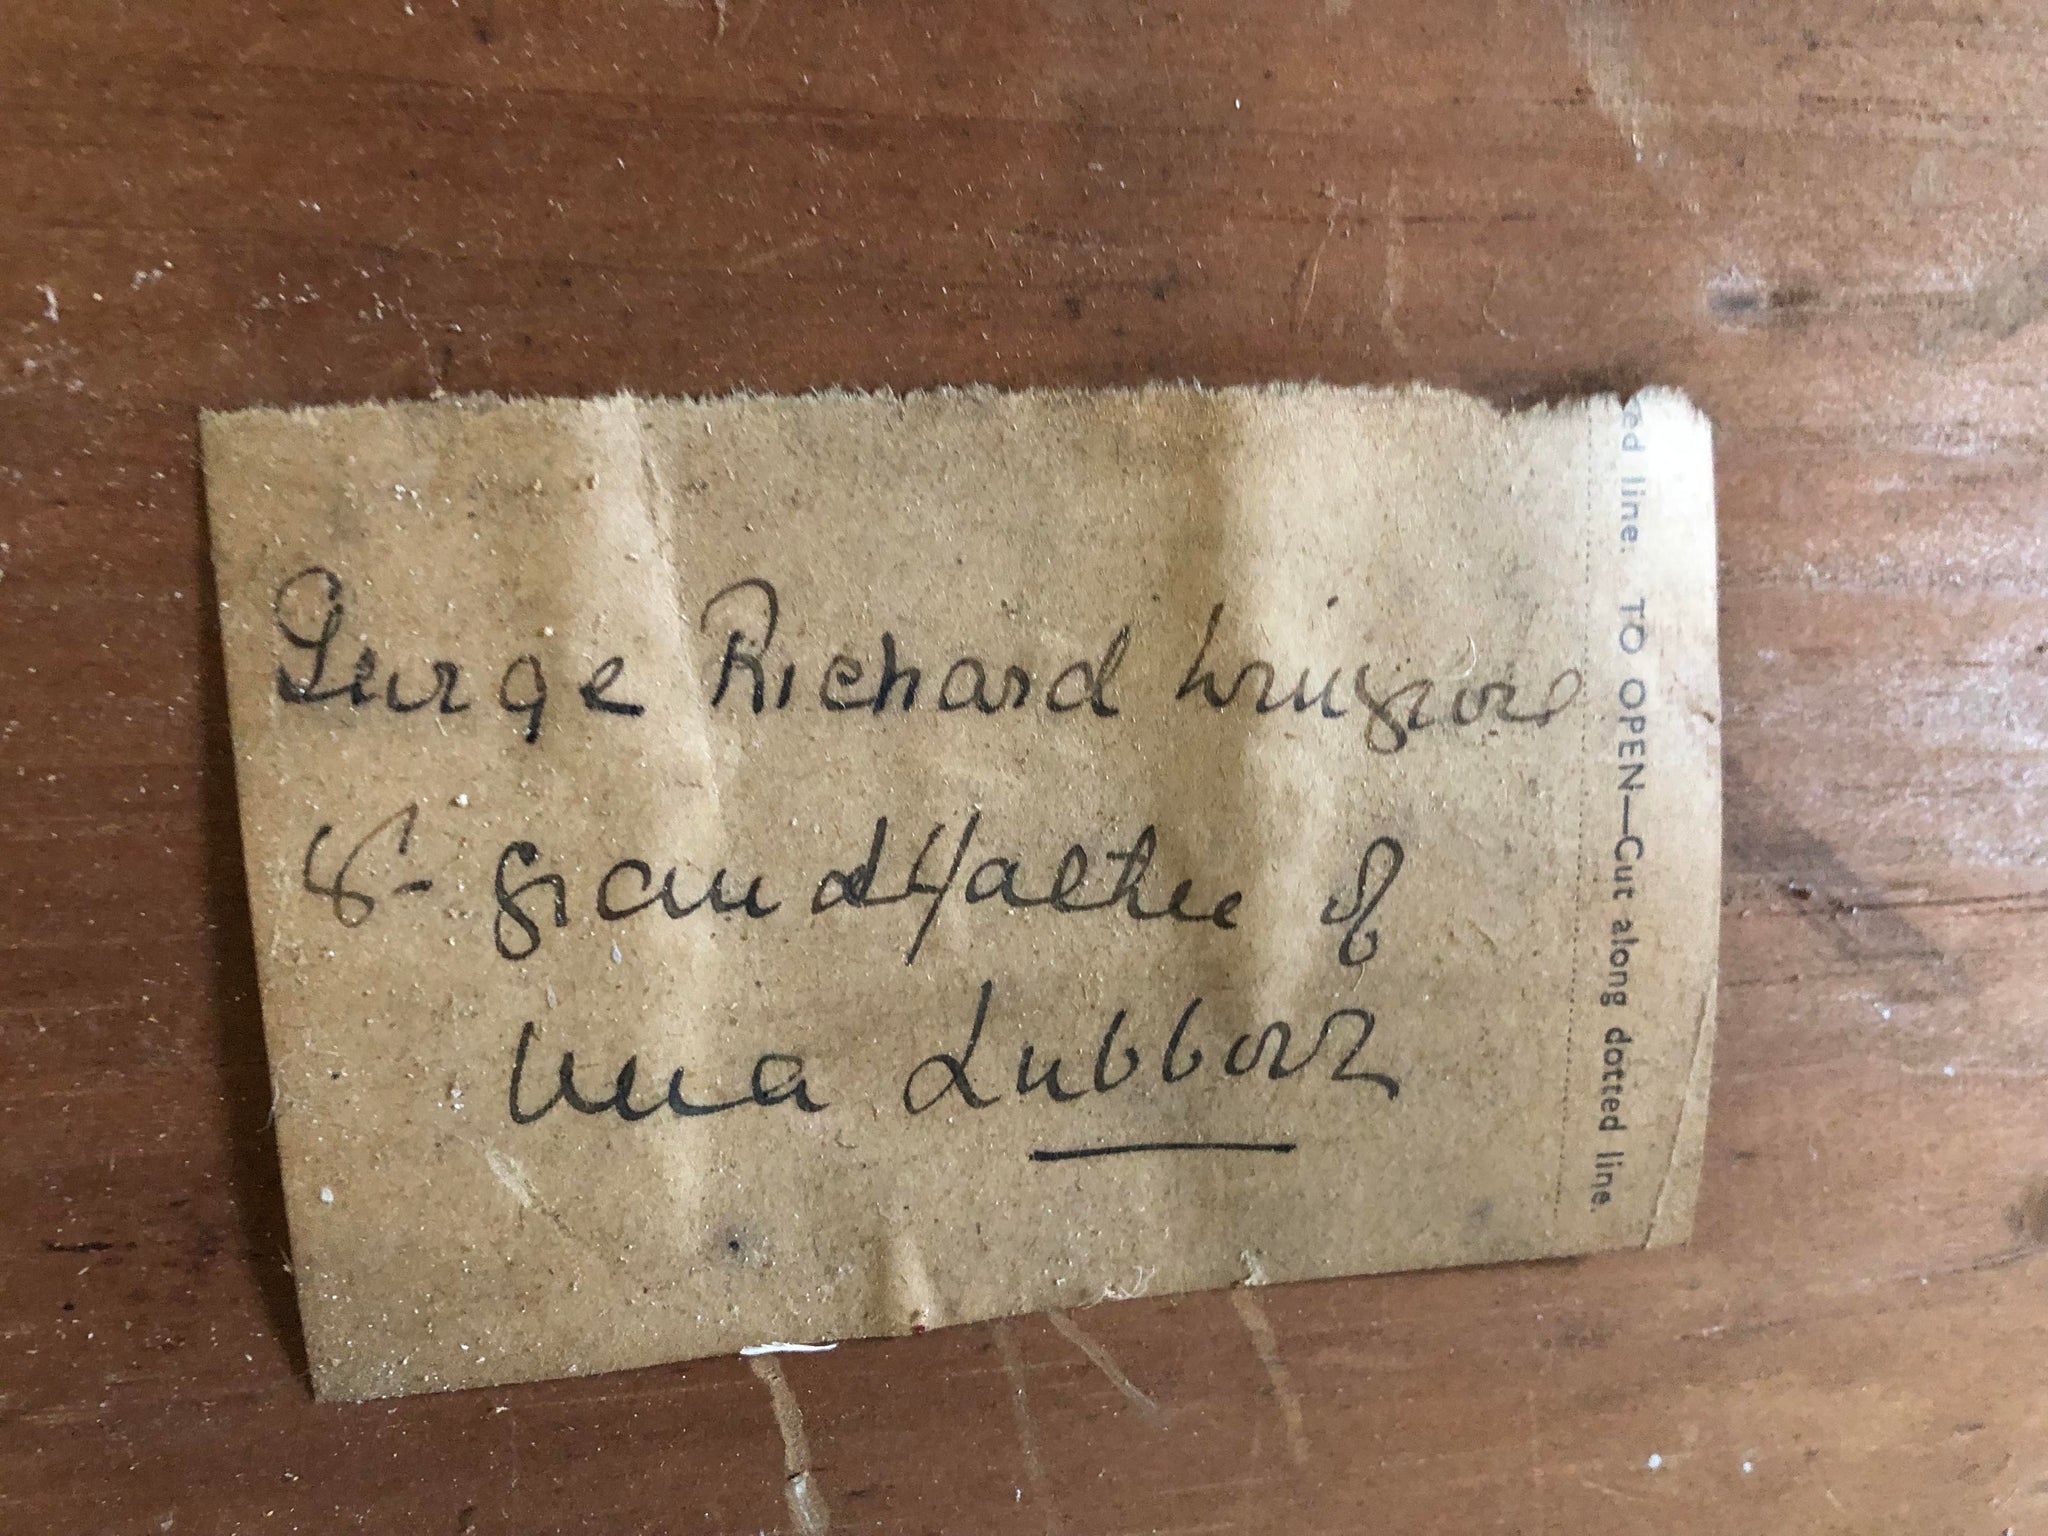 George Richard Wingrove
Gt- grandfather of
Lubbock
ed line. TO OPEN—Cut along dotted line.